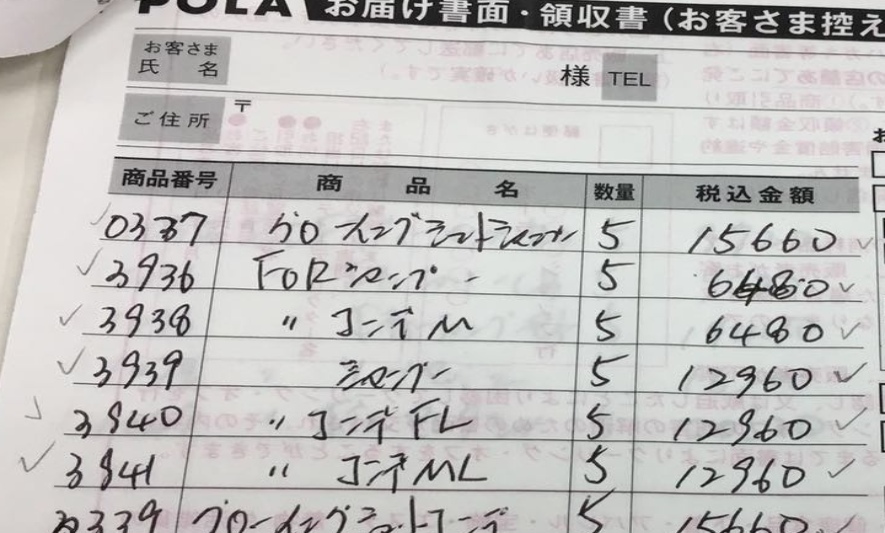 POLA お届け書面・領収書(お客さま控え
お客さま
氏 名
様 TEL
ご住所 〒
商品番号 商 品 名 数量 税込金額
0337 グローイングショットシャンプー 5 15660
3936 FORシャンプー 5 6480
3938 〃 コンデM 5 6480
3939 シャンプー 5 12960
3940 〃 コンデFL 5 12960
3941 〃 コンデML 5 12960
3339 グローイングショットコンデ 5 15660